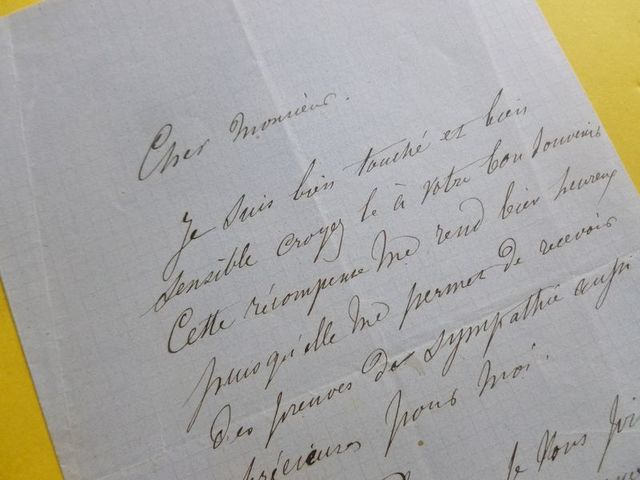 Cher Monsieur.
Je suis bien touché et bien
sensible croyez le à votre bon souvenir
Cette récompense me rend bien heureux
puisqu'elle me permet de recevoir
des preuves de sympathie aussi
précieuses pour moi.
Je vous